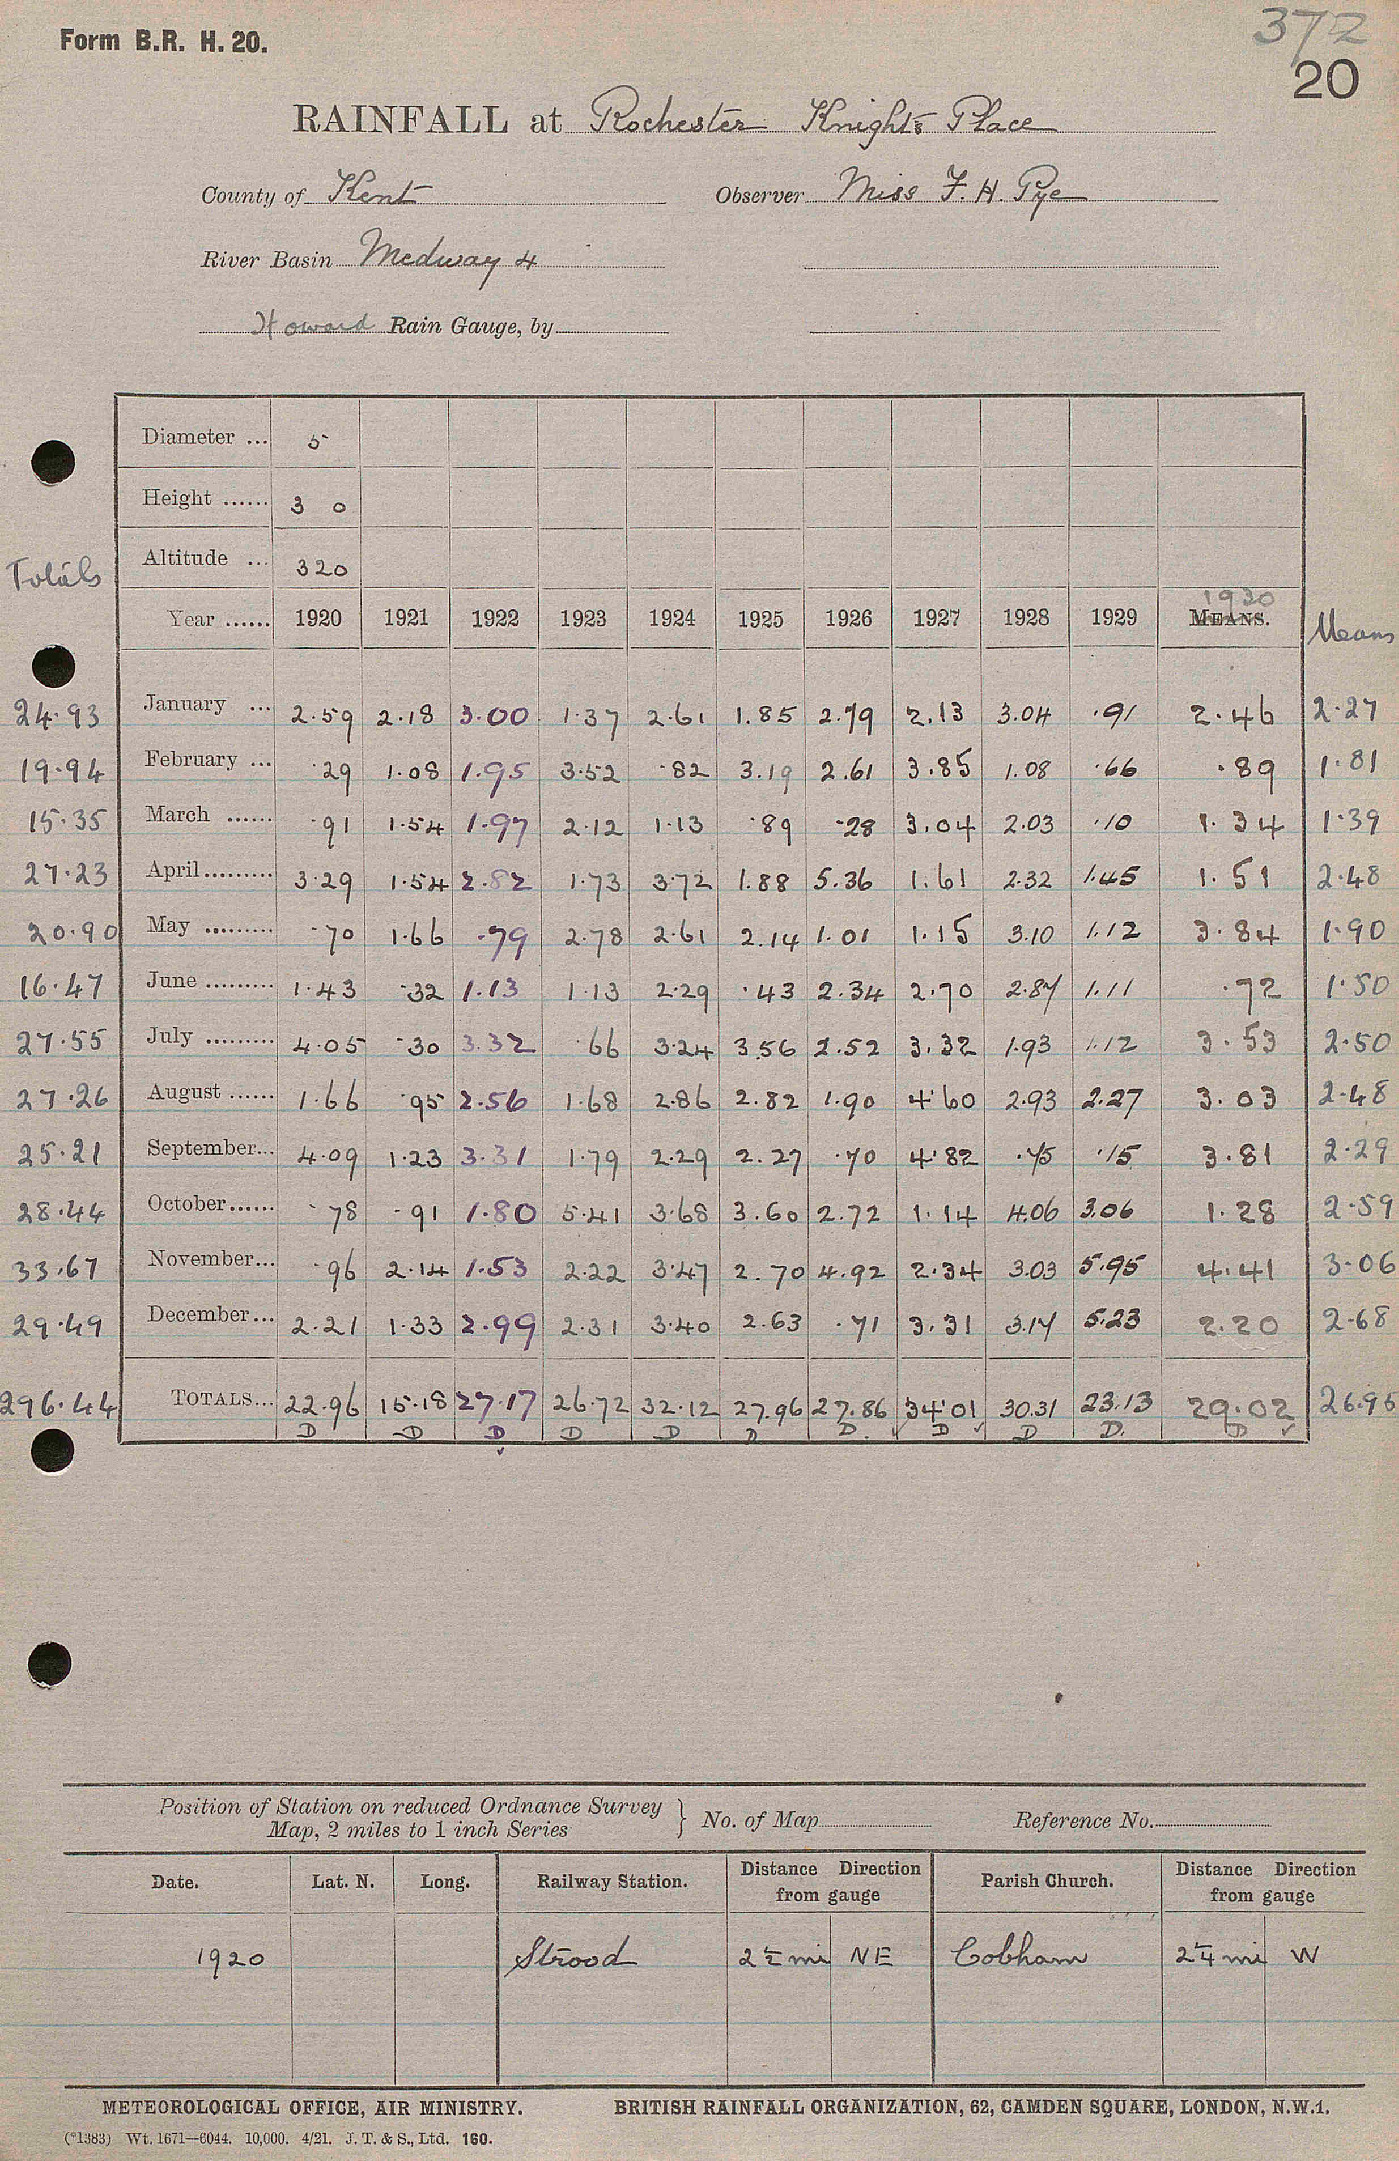 372
Form B.R. H. 20.
20
RAINFALL at Rochester Knights Place
County of Kent Observer Miss F. H. Pye
River Basin Medway 4
Howard Rain Gauge, by
Diameter ... 5
Height ...... 3 0
Altitude ... 320
Totals
1930
Year ...... 1920 1921 1922 1923 1924 1925 1926 1927 1928 1929 MEANS. Means
24.93 January ... 2.59 2.18 3.00 1.37 2.61 1.85 2.79 2.13 3.04 .91 2.46 2.27
19.94 February ... .29 1.08 1.95 3.52 .82 3.19 2.61 3.85 1.08 .66 .89 1.81
15.35 March ...... .91 1.54 1.97 2.12 1.13 .89 .28 3.04 2.03 .10 1.34 1.39
27.23 April......... 3.29 1.54 2.82 1.73 3.72 1.88 5.36 1.61 2.32 1.45 1.51 2.48
20.90 May ......... .70 1.66 .79 2.78 2.61 2.14 1.01 1.15 3.10 1.12 3.84 1.90
16.47 June ......... 1.43 .32 1.13 1.13 2.29 .43 2.34 2.70 2.87 1.11 .72 1.50
27.55 July ......... 4.05 .30 3.32 .66 3.24 3.56 2.52 3.32 1.93 1.12 3.53 2.50
27.26 August ...... 1.66 .95 2.56 1.68 2.86 2.82 1.90 4.60 2.93 2.27 3.03 2.48
25.21 September... 4.09 1.23 3.31 1.79 2.29 2.27 .70 4.82 .75 .15 3.81 2.29
28.44 October...... .78 .91 1.80 5.41 3.68 3.60 2.72 1.14 4.06 3.06 1.28 2.59
33.67 November... .96 2.14 1.53 2.22 3.47 2.70 4.92 2.34 3.03 5.95 4.41 3.06
29.49 December... 2.21 1.33 2.99 2.31 3.40 2.63 .71 3.31 3.17 5.23 2.20 2.68
296.44 TOTALS... 22.96 15.18 27.17 26.72 32.12 27.96 27.86 34.01 30.31 23.13 29.02 26.95
D D D D D D D D D D. D
Position of Station on reduced Ordnance Survey
Map, 2 miles to 1 inch Series } No. of Map Reference No.
Date. Lat. N. Long. Railway Station. Distance Direction from gauge Parish Church. Distance Direction from gauge
1920 Strood 2½ mi NE Cobham 2¼ mi W
METEOROLOGICAL OFFICE, AIR MINISTRY. BRITISH RAINFALL ORGANIZATION, 62, CAMDEN SQUARE, LONDON, N.W.1.
(*1383) Wt. 1671—6044. 10,000. 4/21. J. T. & S., Ltd. 160.